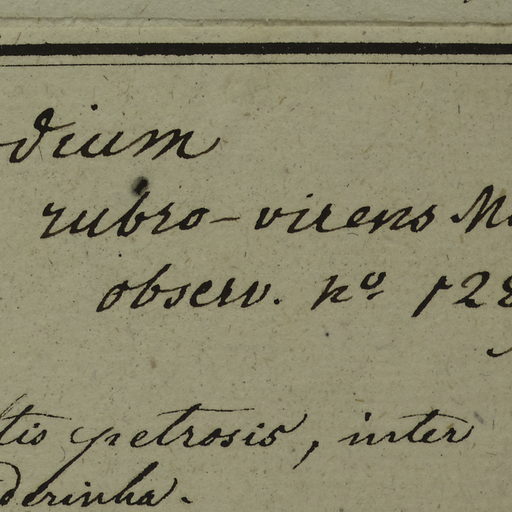 dium
rubro-virens M
observ. no. 128
tis petrosis, inter
derinha.